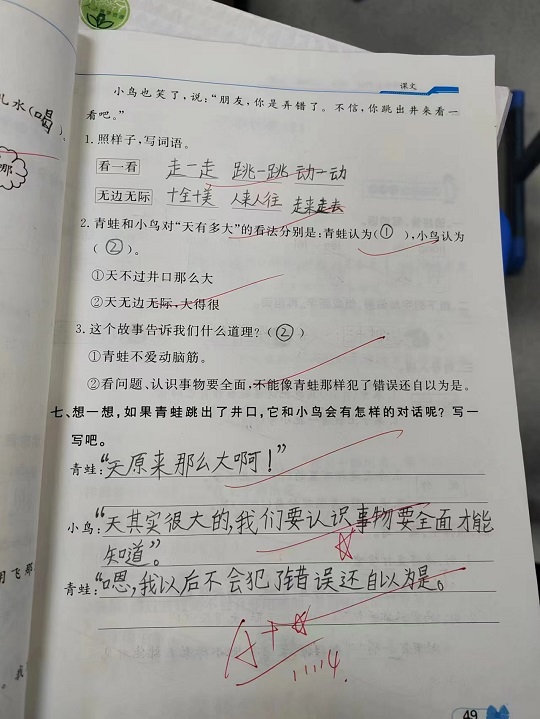 课文
小鸟也笑了，说：“朋友，你是弄错了。不信，你跳出井来看一
看吧。”
1.照样子，写词语。
看一看 走一走 跳一跳 动一动
无边无际 十全十美 人来人往 走来走去
2.青蛙和小鸟对“天有多大”的看法分别是：青蛙认为（①），小鸟认为
（②）。
①天不过井口那么大
②天无边无际，大得很
3.这个故事告诉我们什么道理？（②）
①青蛙不爱动脑筋。
②看问题、认识事物要全面，不能像青蛙那样犯了错误还自以为是。
七、想一想，如果青蛙跳出了井口，它和小鸟会有怎样的对话呢？写一
写吧。
青蛙：“天原来那么大啊！”
小鸟：“天其实很大的，我们要认识事物要全面才能
知道”。
青蛙：“嗯，我以后不会犯了错误还自以为是。
A+
11.14
49
水（喝）
那
用飞那